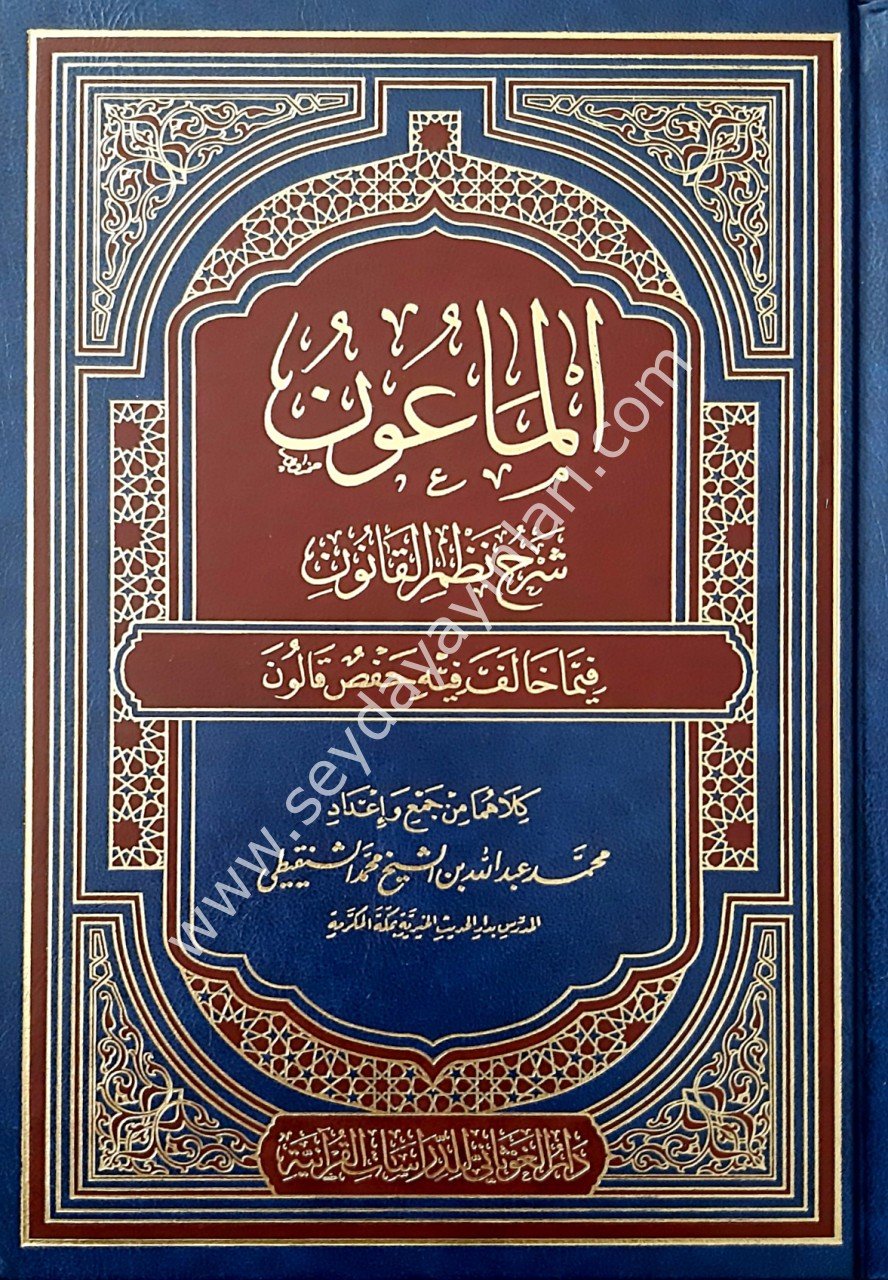 الْمَاعُونُ
شَرْحُ نَظْمِ الْقَانُونِ
فِيمَا خَالَفَ فِيهِ حَفْصٌ قَالُونَ
كِلَاهُمَا مِنْ جَمْعِ وَإِعْدَادِ
محمّد عبد الله بن الشيخ محمّد الشنقيطي
المدرّس بدار الحديث الخيريّة بمكّة المكرّمة
دَارُ الْغَوْثَانِي لِلدِّرَاسَاتِ الْقُرْآنِيَّةِ
www.seydayayinlari.com